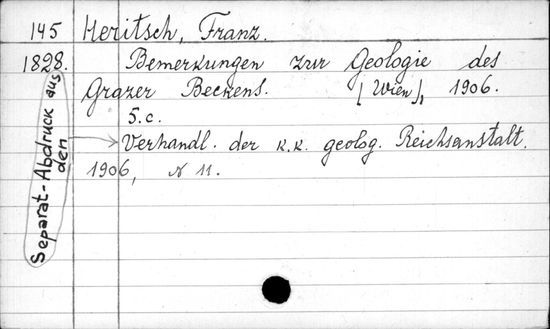 145 Heritsch, Franz.
1828. Bemerkungen zur Geologie des
Grazer Beckens. [Wien], 1906.
5.c.
Separat-Abdruck aus
den
Verhandl. der K.K. geolog. Reichsanstalt.
1906, N 11.